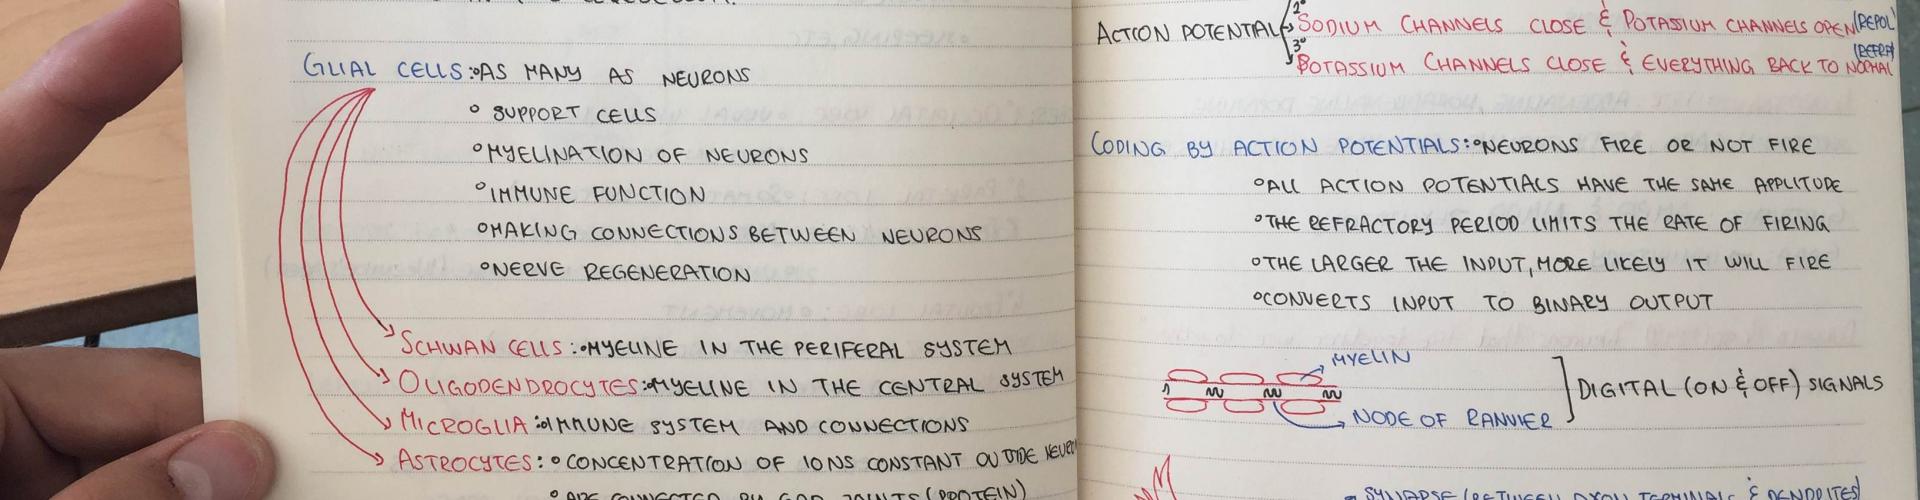 GLIAL CELLS:°AS MANY AS NEURONS
° SUPPORT CELLS
°MYELINATION OF NEURONS
°IMMUNE FUNCTION
°MAKING CONNECTIONS BETWEEN NEURONS
°NERVE REGENERATION
SCHWAN CELLS:°MYELINE IN THE PERIFERAL SYSTEM
OLIGODENDROCYTES:°MYELINE IN THE CENTRAL SYSTEM
MICROGLIA:°IMMUNE SYSTEM AND CONNECTIONS
ASTROCYTES:° CONCENTRATION OF IONS CONSTANT OUTSIDE
° ARE CONNECTED BY GAP JOINTS (PROTEIN)
ACTION POTENTIAL
2° SODIUM CHANNELS CLOSE & POTASSIUM CHANNELS OPEN (REPOL
3° POTASSIUM CHANNELS CLOSE & EVERYTHING BACK TO NORMAL
CODING BY ACTION POTENTIALS:°NEURONS FIRE OR NOT FIRE
°ALL ACTION POTENTIALS HAVE THE SAME APPLITUDE
°THE REFRACTORY PERIOD LIMITS THE RATE OF FIRING
°THE LARGER THE INPUT, MORE LIKELY IT WILL FIRE
°CONVERTS INPUT TO BINARY OUTPUT
MYELIN
NODE OF RANVIER
DIGITAL (ON & OFF) SIGNALS
SYNAPSE (BETWEEN AXON TERMINALS & DENDRITES)